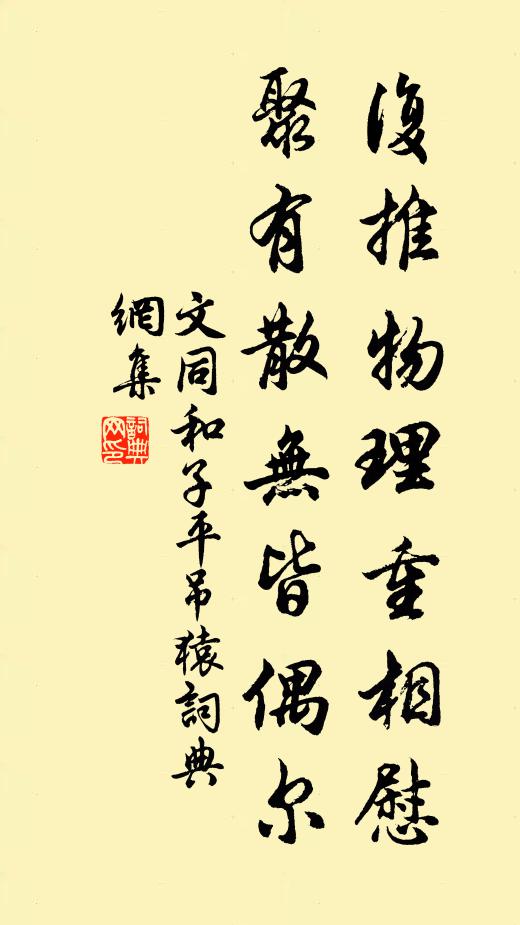 復推物理重相慰
聚有散無皆偶尔
文同和子平吊猿詞典
網集
詞典
网印